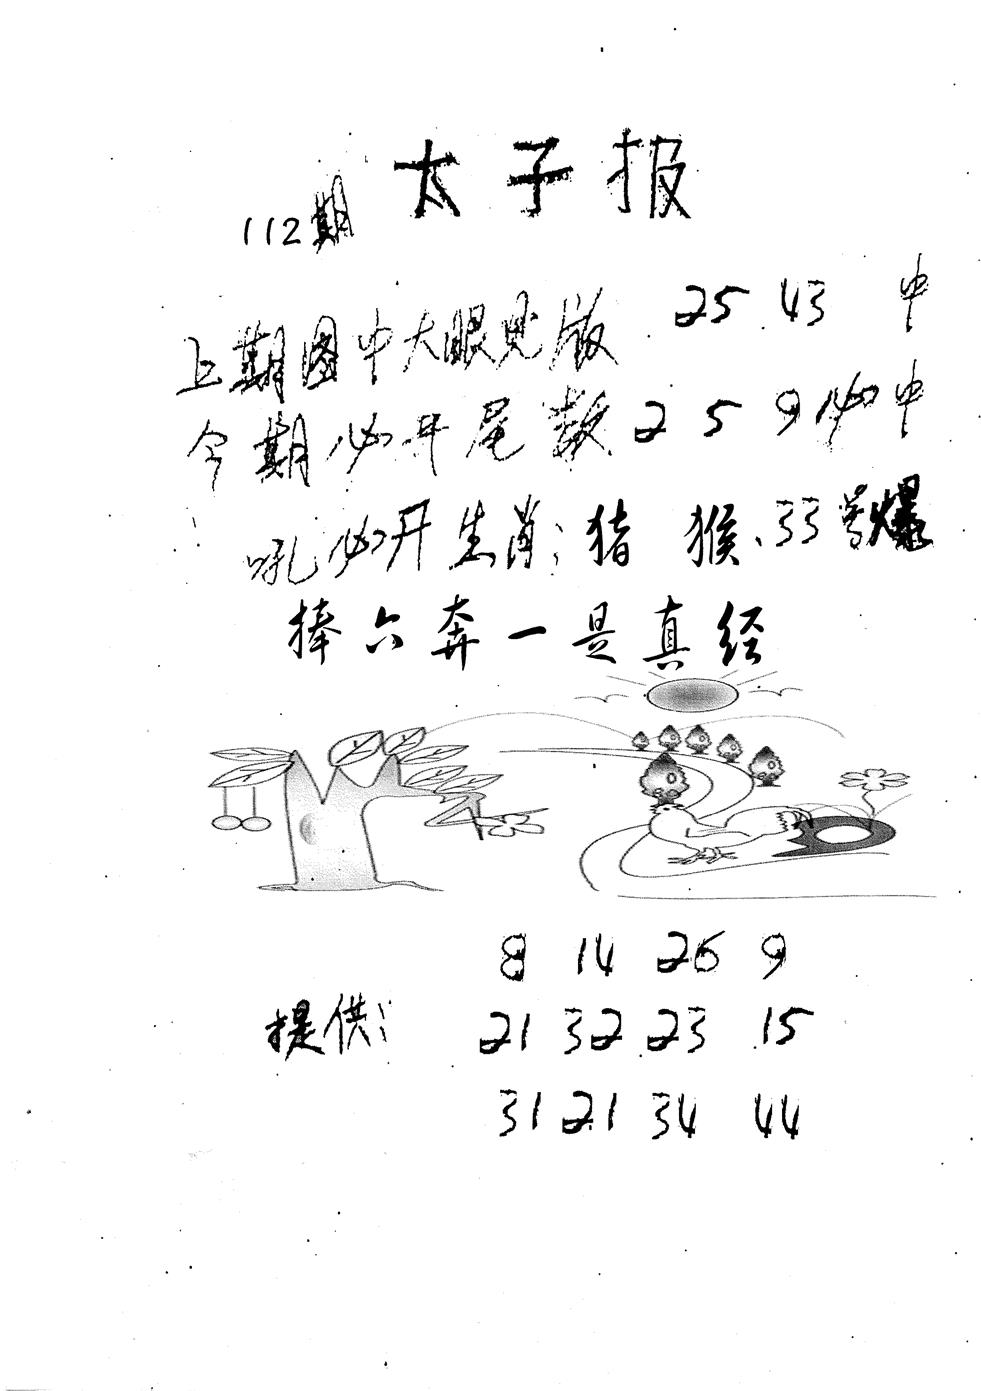 太子报
112期
上期图中大眼见版 25 43 中
今期必开尾数 2 5 9必中
吼必开生肖:猪 猴、33号爆
捧六奔一是真经
8 14 26 9
提供: 21 32 23 15
31 21 34 44